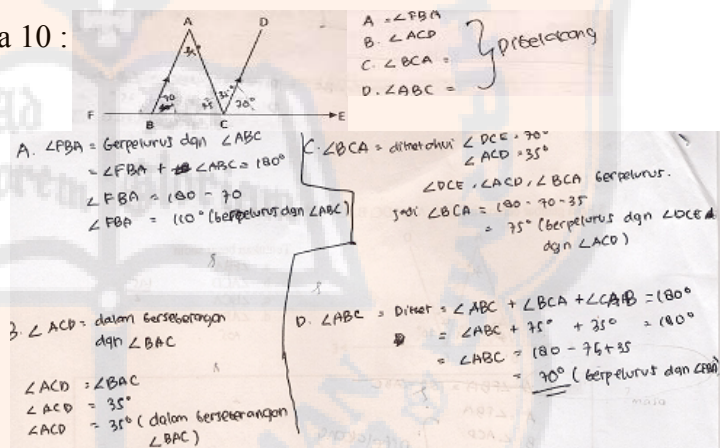 a 10 :
A D
35°
70 75 35° 70°
F B C E
A = ∠FBA
B. ∠ACD
C. ∠BCA =
D. ∠ABC =
Dibelakang
A. ∠FBA = berpelurus dgn ∠ABC
= ∠FBA + ∠ABC = 180°
∠FBA = 180 - 70
∠FBA = 110° (berpelurus dgn ∠ABC)
B. ∠ACD = dalam berseberangan
dgn ∠BAC
∠ACD = ∠BAC
∠ACD = 35°
∠ACD = 35° (dalam berseberangan
∠BAC)
C. ∠BCA = diketahui ∠DCE = 70°
∠ACD = 35°
∠DCE, ∠ACD, ∠BCA berpelurus.
Jadi ∠BCA = 180 - 70 - 35
= 75° (berpelurus dgn ∠DCE d
dgn ∠ACD)
D. ∠ABC = Diket = ∠ABC + ∠BCA + ∠CAB = 180°
= ∠ABC + 75° + 35° = 180°
= ∠ABC = 180 - 75 + 35
= 70° (berpelurus dgn ∠FBA)